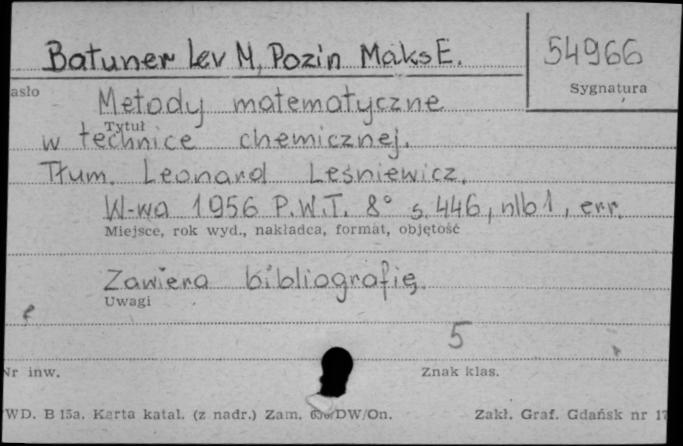 Batuner Lev M, Pozin Maks E. 54966
asło Sygnatura
Metody matematyczne
Tytuł
w technice chemicznej.
Tłum. Leonard Leśniewicz.
W-wa 1956 P.W.T. 8° s. 446, nlb 1, err.
Miejsce, rok wyd., nakładca, format, objętość
Zawiera bibliografię.
Uwagi
5
Nr inw. Znak klas.
WD. B 15a. Karta katal. (z nadr.) Zam. /DW/On. Zakł. Graf. Gdańsk nr 17